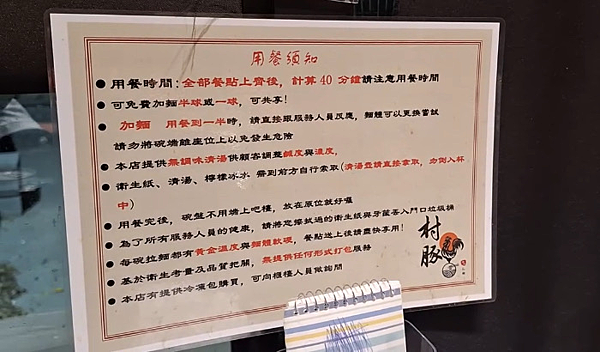 用餐須知
● 用餐時間：全部餐點上齊後，計算 40 分鐘請注意用餐時間
● 可免費加麵半球或一球，可共享！
● 加麵 用餐到一半時，請直接跟服務人員反應，麵體可以更換嘗試
請勿將碗端離座位上以免發生危險
● 本店提供無調味清湯供顧客調整鹹度與濃度，
● 衛生紙、清湯、檸檬冰水 需到前方自行索取(清湯壺請直接拿取，勿倒入杯
中)
● 用餐完後，碗盤不用端上吧檯，放在原位就好囉
● 為了所有服務人員的健康，請將您擦拭過的衛生紙與牙籤丟入門口垃圾桶
● 每碗拉麵都有黃金溫度與麵體軟硬，餐點送上後請盡快享用！
● 基於衛生考量及品質把關，無提供任何形式打包服務
● 本店有提供冷凍包購買，可向櫃檯人員做詢問
村豚